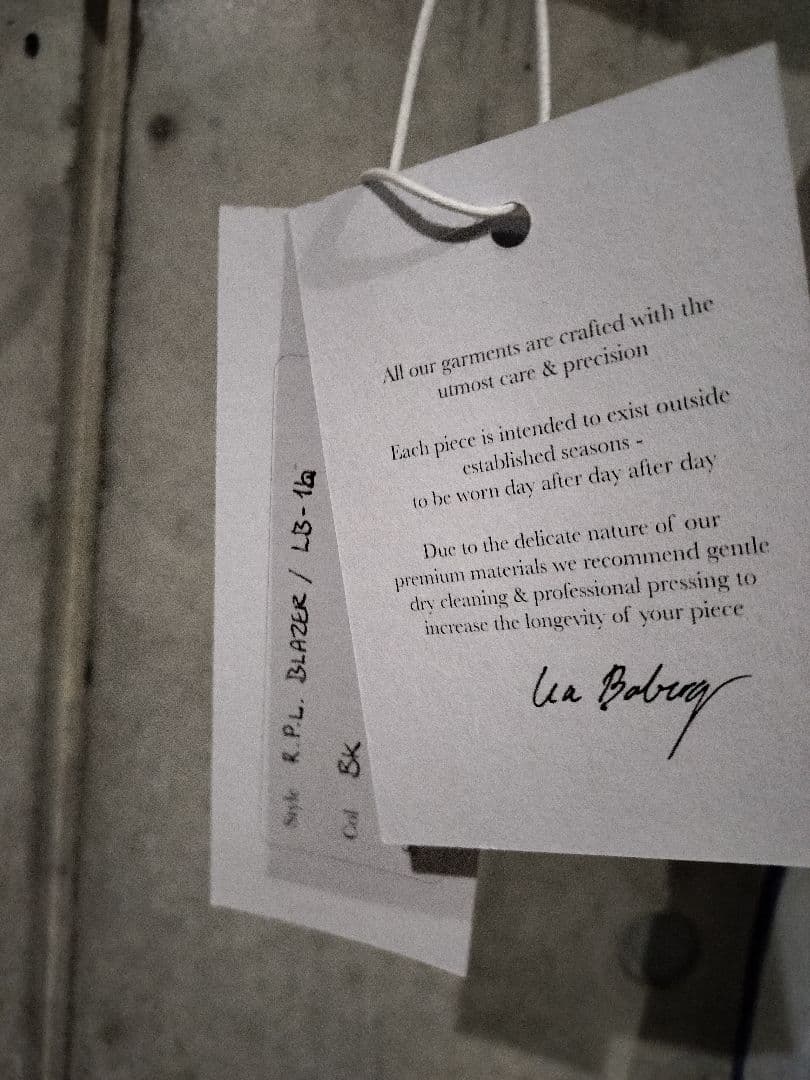 All our garments are crafted with the
utmost care & precision
Each piece is intended to exist outside
established seasons -
to be worn day after day after day
Due to the delicate nature of our
premium materials we recommend gentle
dry cleaning & professional pressing to
increase the longevity of your piece
Lea Boberg
Style R.P.L. BLAZER / LB-16
Col BK